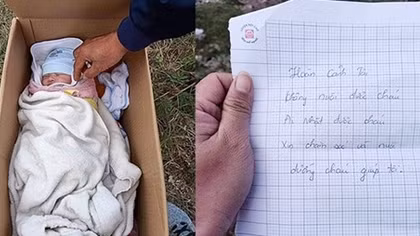 Hoàn Cảnh Tôi
không nuôi được cháu
Ai Nhặt được cháu
Xin chăm sóc và nuôi
dưỡng cháu giúp tôi.